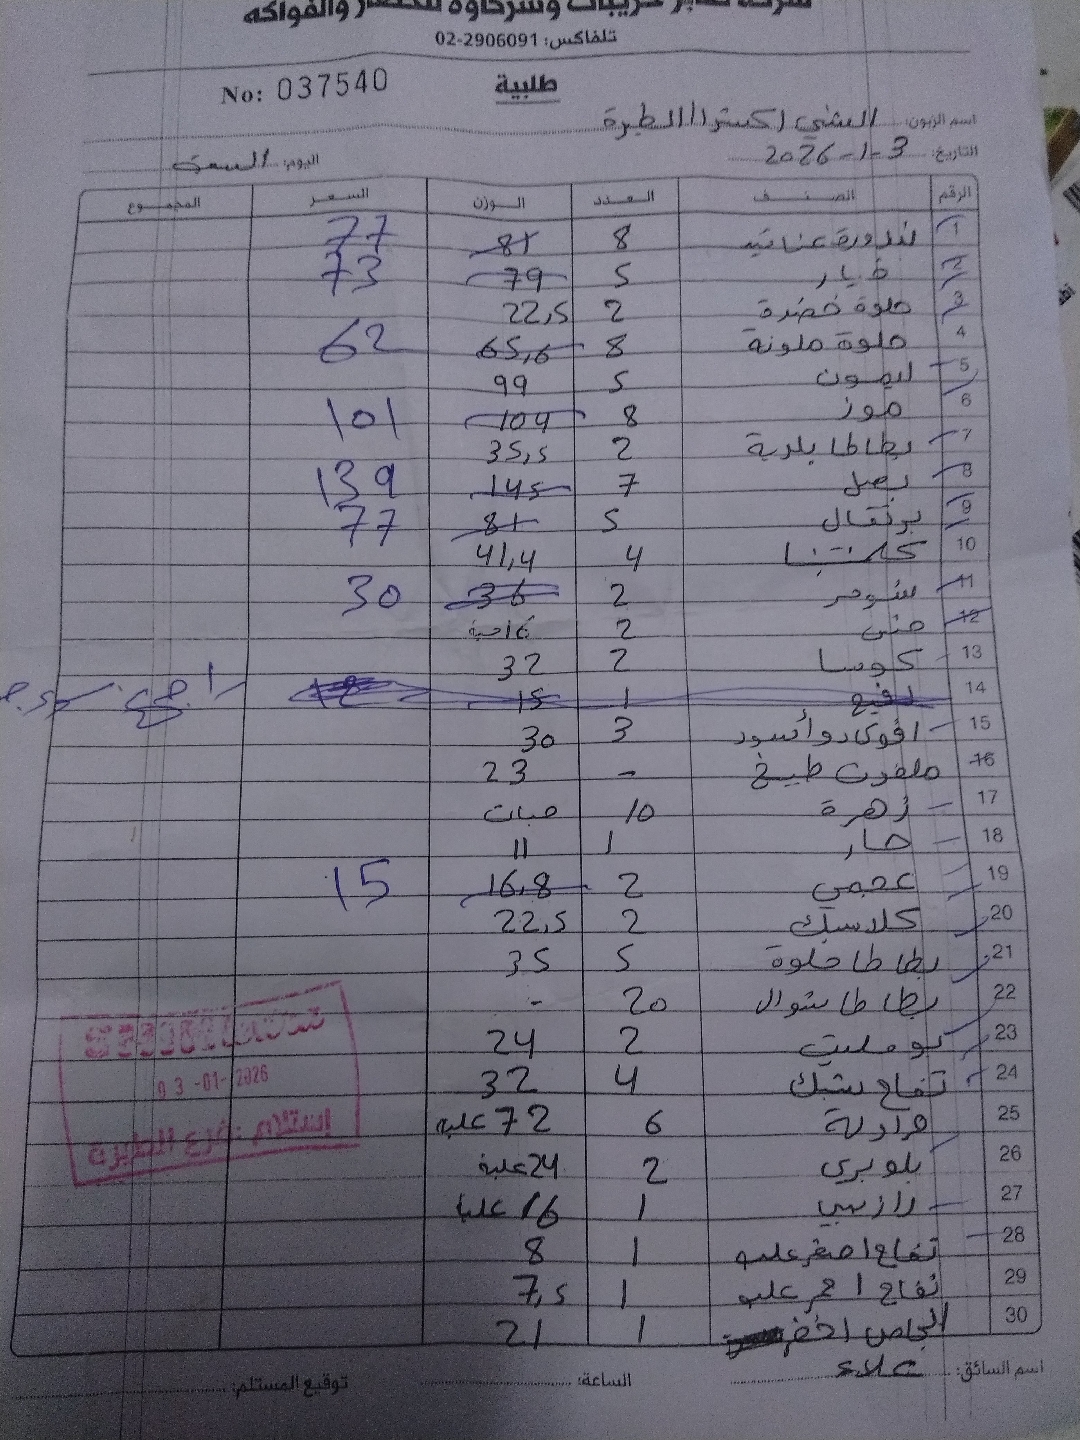 شركة صابر خريبات وشركاؤه للخضار والفواكه
تلفاكس: 02-2906091
طلبية
No: 037540
اسم الزبون: الشني اكسترا / الطيرة
التاريخ: 3-1-2026 اليوم: السبت
الرقم الصنف العدد الوزن السعر المجموع
1 بندورة عناقيد 8 81 77
2 خيار 5 79 73
3 حلوة خضرة 2 22,5
4 حلوة ملونة 8 65,6 62
5 ليمون 5 99
6 موز 8 104 101
7 بطاطا بلدية 2 35,5
8 بصل 7 145 139
9 برتقال 5 81 77
10 كلمنتينا 4 41,4
11 شومر 2 36 30
12 2 16 حبة
13 كوسا 2 32
14 1 15 12
15 افوكادو أسود 3 30
16 ملفوف طبيخ - 23
17 زهرة 10 حبات
18 حار 1 11
19 عجمي 2 16,8 15
20 كلاسيك 2 22,5
21 بطاطا حلوة 5 35
22 بطاطا شوال 20 -
23 بومليت 2 24
24 تفاح سبتك 4 32
25 فراولة 6 72 علبه
26 بلوبري 2 24 علبة
27 رازبيري 1 16 علبة
28 تفاح اصفر علب 1 8
29 تفاح احمر علب 1 7,5
30 انجاص اخضر 1 21
03-01-2026
استلام: فرع الطيرة
اسم السائق: علاء الساعة: توقيع المستلم: